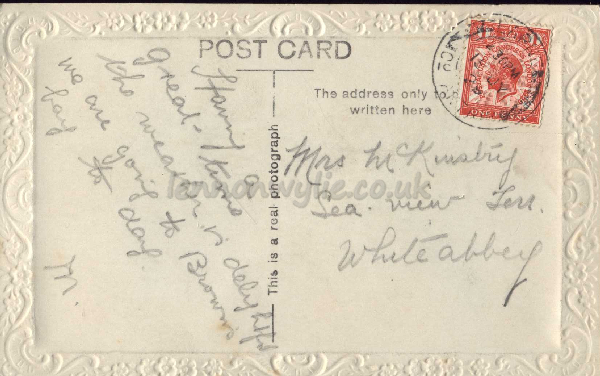 POST CARD
The address only to be
written here
This is a real photograph
ONE PENNY
Having a
great time
the weather is delightful
we are going to Browns
bay to day
M.
Mrs McKinstry
Sea view Terr.
Whiteabbey
lennonwylie.co.uk